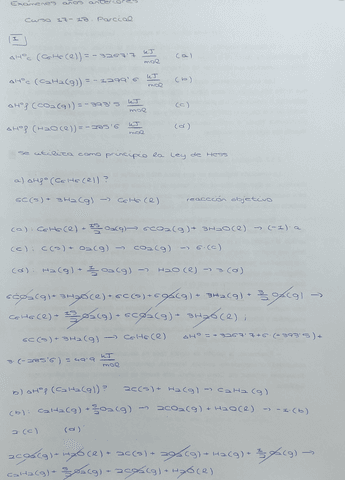 Exámenes años anteriores
Curso 17-18. Parcial
1
ΔHºc (C6H6(l)) = -3267'7 kJ/mol (a)
ΔHºc (C2H2(g)) = -1299'5 kJ/mol (b)
ΔHºf (CO2(g)) = -393'5 kJ/mol (c)
ΔHºf (H2O(l)) = -285'8 kJ/mol (d)
Se utiliza como principio la Ley de Hess
a) ΔHfº (C6H6(l))?
6C(s) + 3H2(g) → C6H6(l) reacción objetivo
(a): C6H6(l) + 15/2 O2(g) → 6CO2(g) + 3H2O(l) →
(c): C(s) + O2(g) → CO2(g) → 6·(c)
(d): H2(g) + 1/2 O2(g) → H2O(l) → 3(d)
6CO2(g) + 3H2O(l) + 6C(s) + 6O2(g) + 3H2(g) + 3/2 O2(g) →
C6H6(l) + 15/2 O2(g) + 6CO2(g) + 3H2O(l)
6C(s) + 3H2(g) → C6H6(l) ΔHº =
kJ/mol
b) ΔHºf (C2H2(g))? 2C(s) + H2(g) → C2H2(g)
(b): C2H2(g) + 5/2 O2(g) → 2CO2(g) + H2O(l) → -1(b)
2(c) (d)
2CO2(g) + H2O(l) + 2C(s) + 2O2(g) + H2(g) + 1/2 O2(g) →
C2H2(g) + 5/2 O2(g) + 2CO2(g) + H2O(l)